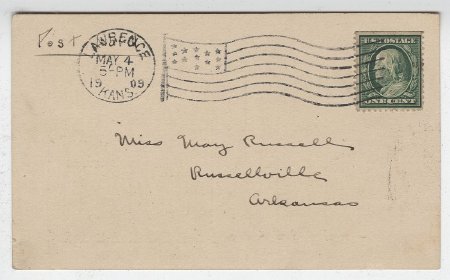 Post
LAWRENCE
MAY 4
5-PM
1909
KANS.
U.S. POSTAGE
ONE CENT
Miss May Russell
Russellville
Arkansas